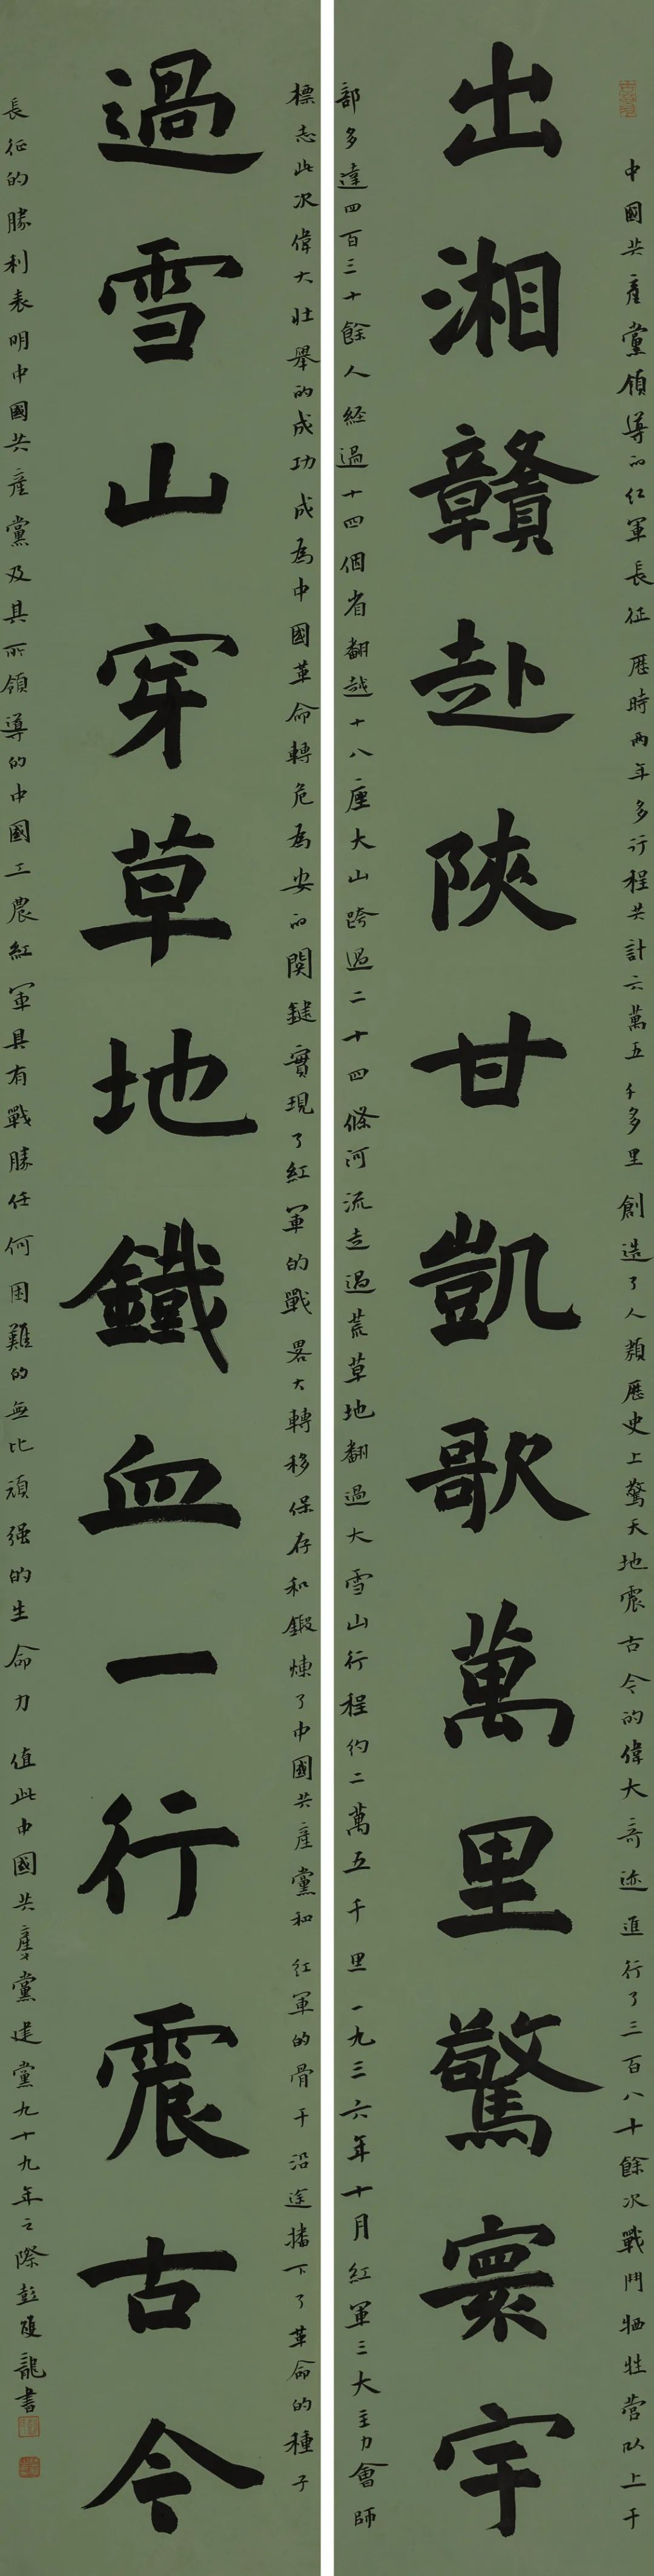 中國共產黨領導的紅軍長征歷時兩年多行程共計六萬五千多里創造了人類歷史上驚天地震古今的偉大奇迹進行了三百八十餘次戰鬥犧牲營以上干
出湘贛赴陝甘凱歌萬里驚寰宇
部多達四百三十餘人經過十四個省翻越十八座大山跨過二十四條河流走過荒草地翻過大雪山行程約二萬五千里一九三六年十月紅軍三大主力會師
標志此次偉大壯舉的成功成為中國革命轉危為安的関鍵實現了紅軍的戰畧大轉移保存和鍛煉了中國共產黨和紅軍的骨干沿途播下了革命的種子
過雪山穿草地鐵血一行震古今
長征的勝利表明中國共產黨及其所領導的中國工農紅軍具有戰勝任何困難的無比頑强的生命力值此中國共產黨建黨九十九年之際彭雙龍書